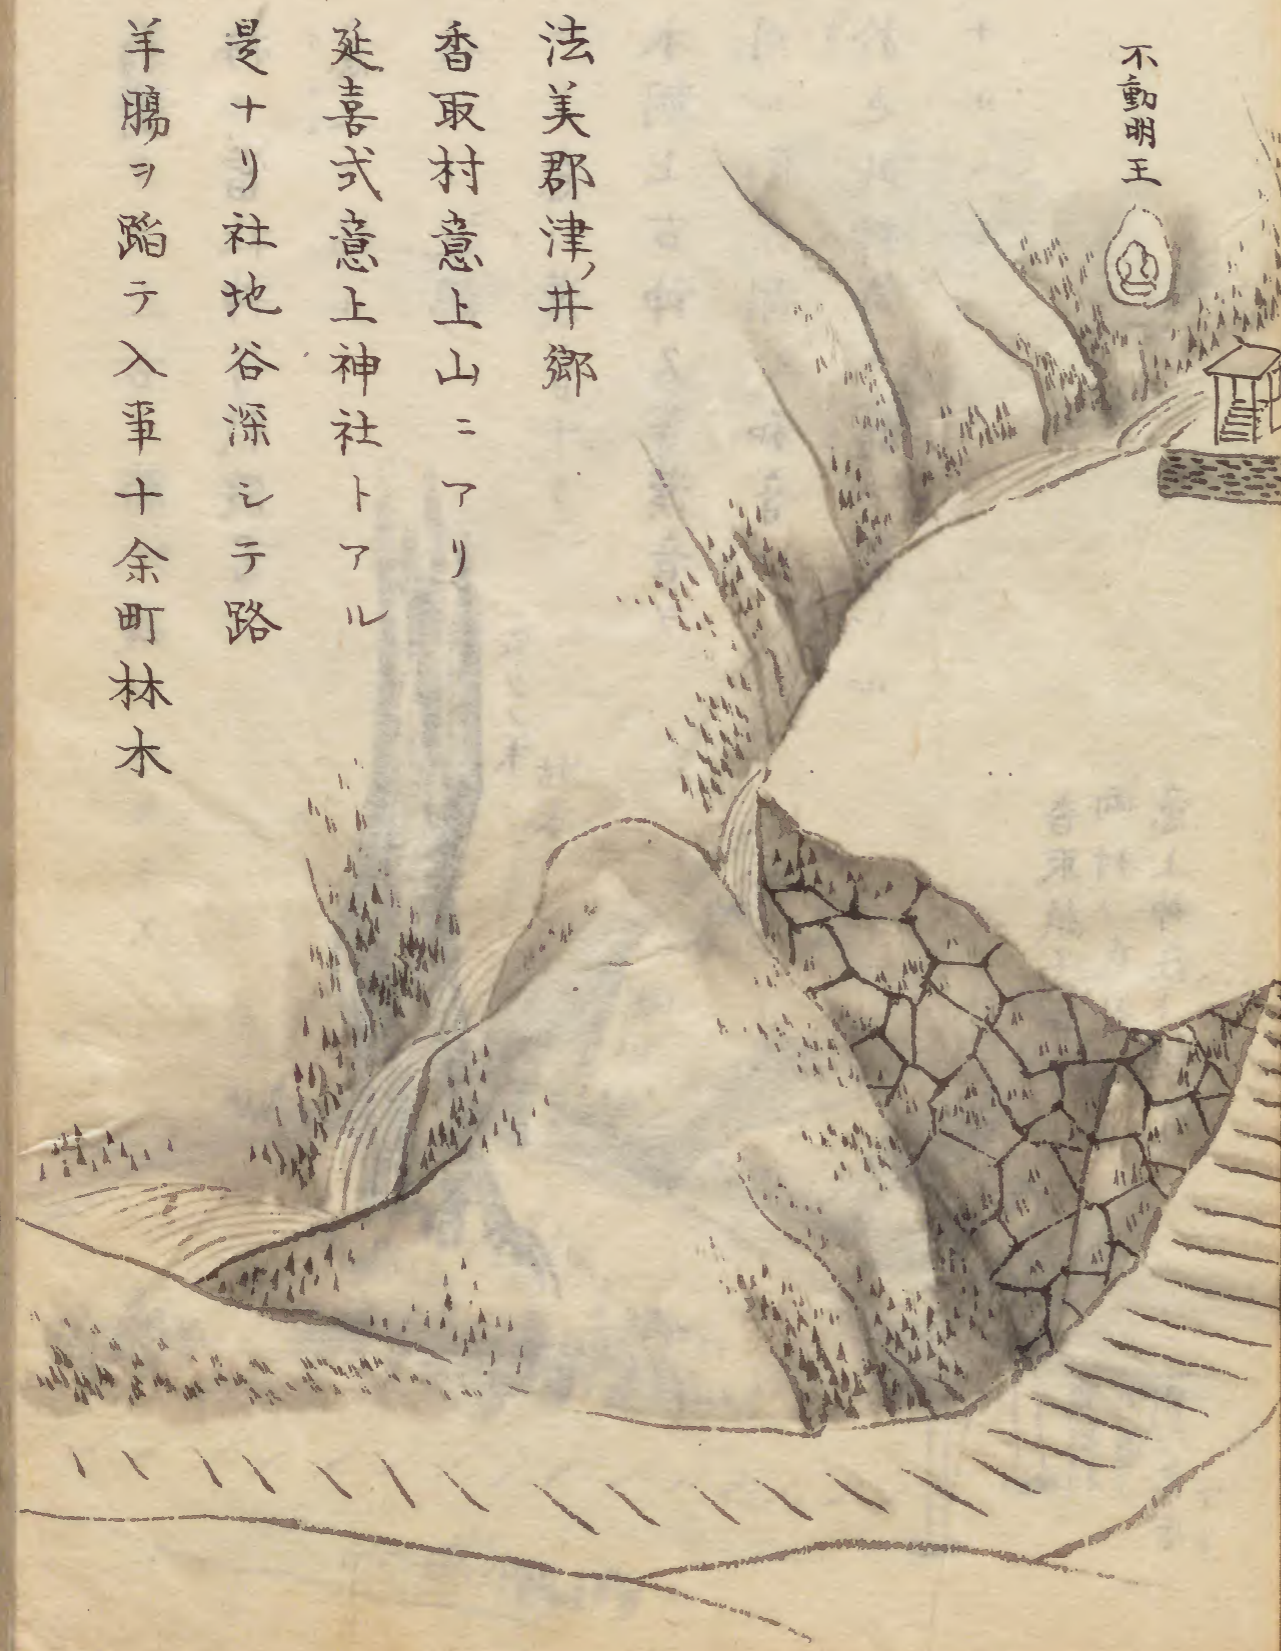 不動明王
法美郡津ノ井郷
香取村意上山ニアリ
延喜式意上神社トアル
是ナリ社地谷深シテ路
羊腸ヲ蹈テ入事十余町林木